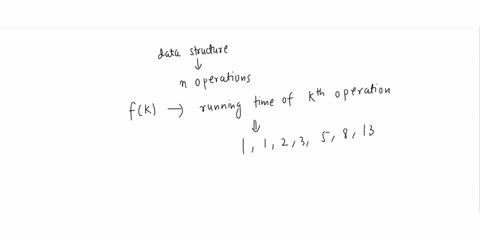 data structure
↓
n operations
f(K) → running time of Kth operation
⇓
1, 1, 2, 3, 5, 8, 13